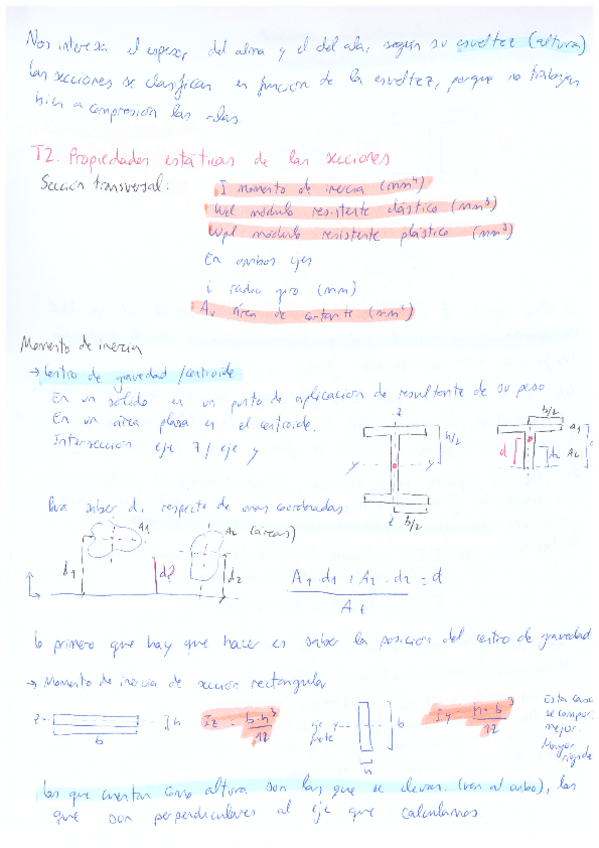 Nos interesa el espesor del alma y el del ala, según su esveltez (altura)
las secciones se clasifican en función de la esveltez, porque no trabajan
bien a compresión las alas
T2. Propiedades estáticas de las secciones
Sección transversal:
I momento de inercia (mm⁴)
Wel módulo resistente elástico (mm³)
Wpl módulo resistente plástico (mm³)
En ambos ejes
i radio giro (mm)
Av área de cortante (mm²)
Momento de inercia
→ Centro de gravedad / centroide
En un sólido es un punto de aplicación de resultante de su peso
En un área plana es el centroide.
Intersección eje z / eje y
z
h/2
y
y
z
b/2
b/2
A1
d
d2
A2
Para saber d, respecto de unas coordenadas
A1
A2 (áreas)
d1
d?
d2
A1 · d1 + A2 · d2 = d
At
lo primero que hay que hacer es saber la posición del centro de gravedad
→ Momento de inercia de sección rectangular
z
h
b
Iz = b·h³/12
eje y
b
h
Iy = h·b³/12
Esta caso
se compor
mejor.
Mayor
rigide
las que cuentan como altura son las que se elevan. (van al cubo), las
que son perpendiculares al eje que calculamos